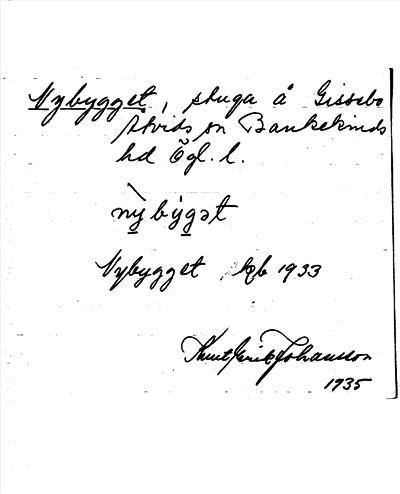 Nybygget, stuga å Gissebo
Åtvids sn Bankekinds
hd Ögl. l.
nỳbýgət
Nybygget kb 1933
Knut Erik Johansson
1935